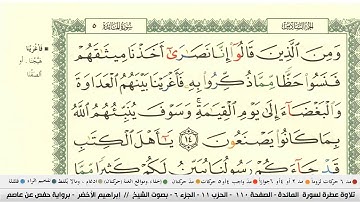 الجزء السادس سورة المائدة ٥
وَمِنَ ٱلَّذِينَ قَالُوٓا۟ إِنَّا نَصَٰرَىٰٓ أَخَذْنَا مِيثَٰقَهُمْ
فَنَسُوا۟ حَظًّا مِّمَّا ذُكِّرُوا۟ بِهِۦ فَأَغْرَيْنَا بَيْنَهُمُ ٱلْعَدَاوَةَ
وَٱلْبَغْضَآءَ إِلَىٰ يَوْمِ ٱلْقِيَٰمَةِ ۚ وَسَوْفَ يُنَبِّئُهُمُ ٱللَّهُ
بِمَا كَانُوا۟ يَصْنَعُونَ ١٤ يَٰٓأَهْلَ ٱلْكِتَٰبِ
قَدْ جَآءَكُمْ رَسُولُنَا يُبَيِّنُ لَكُمْ كَثِيرًا مِّمَّا
فَأَغْرَيْنَا
هَيَّجْنَا . أو
ألصقنا
تلاوة عطرة لسورة المائدة - الصفحة ١١٠ - الحزب ١١ - الجزء ٦ - بصوت الشيخ // ابراهيم الأخضر - برواية حفص عن عاصم